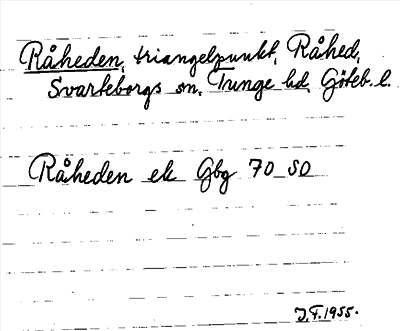 Råheden, triangelpunkt, Råhed,
Svarteborgs sn, Tunge hd, Göteb. l.
Råheden ek Gbg 70 SO
J.F. 1955.